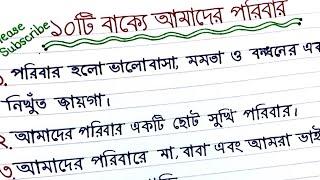 Please
Subscribe
১০টি বাক্যে আমাদের পরিবার
১. পরিবার হলো ভালোবাসা, মমতা ও বন্ধনের এক
নিখুঁত জায়গা।
২. আমাদের পরিবার একটি ছোট সুখি পরিবার।
৩. আমাদের পরিবারে মা, বাবা এবং আমরা ভাই